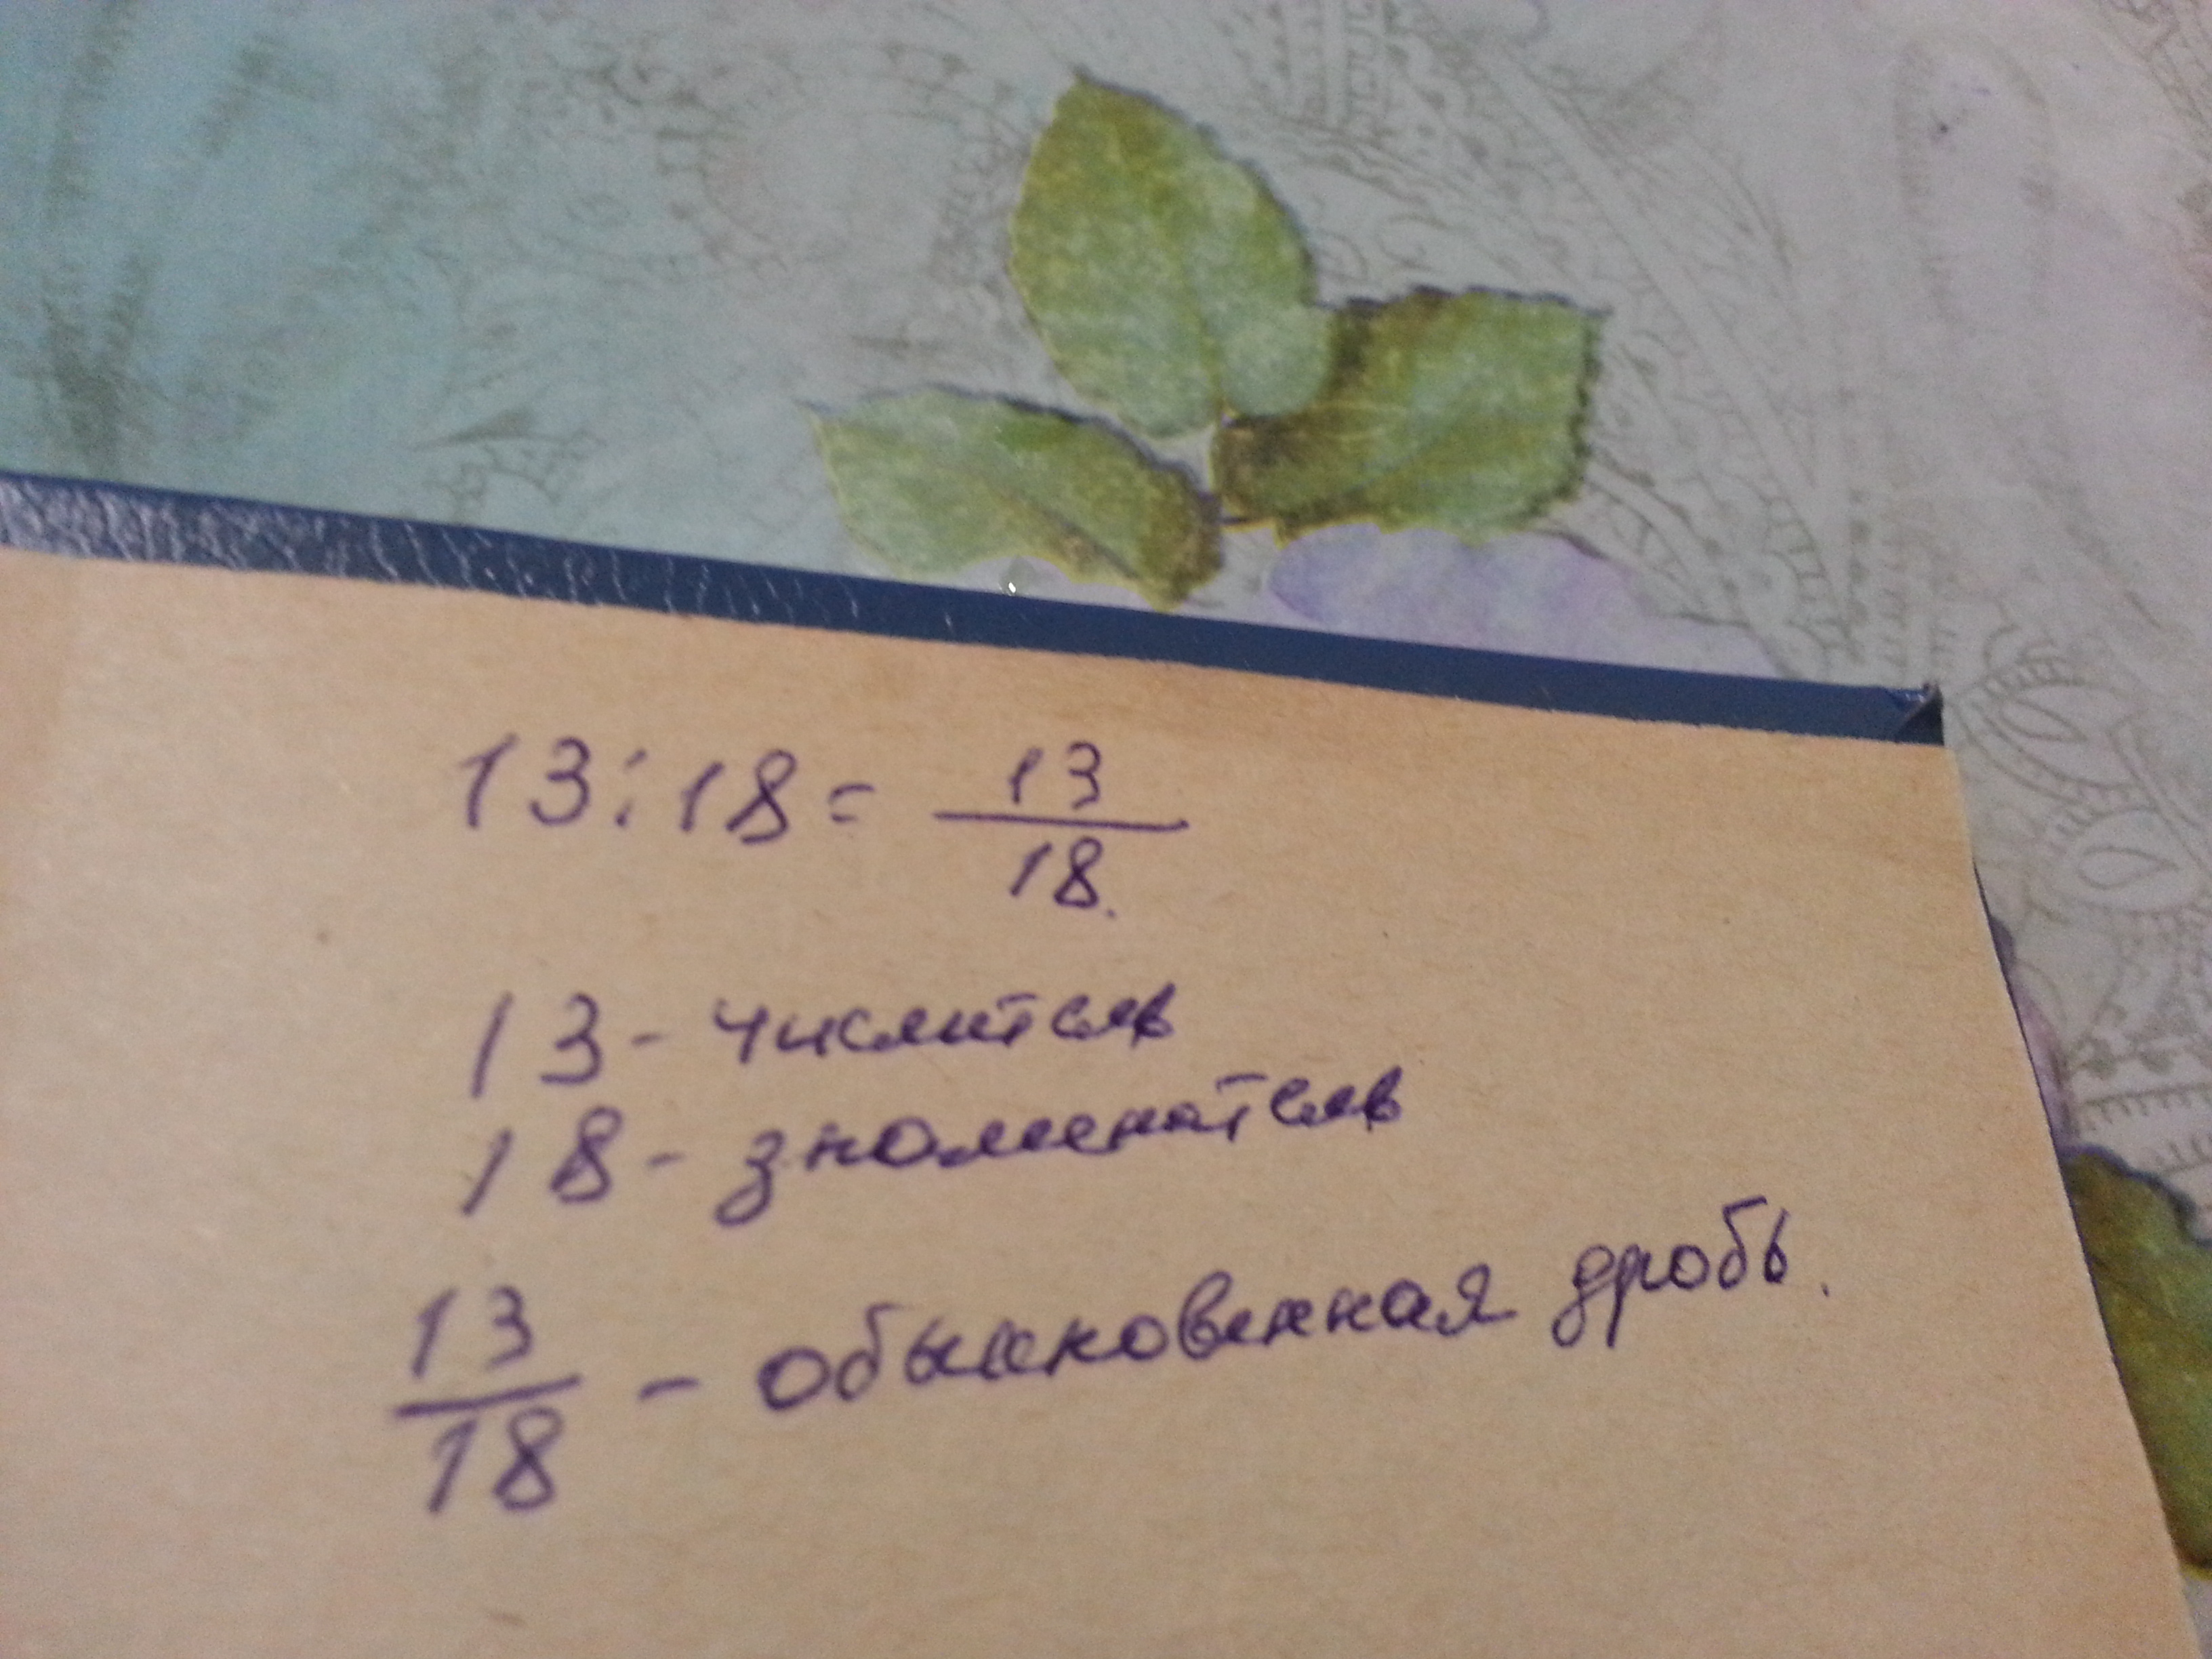 13:18= 13/18.
13 - числитель
18 - знаменатель
13/18 - обыкновенная дробь.